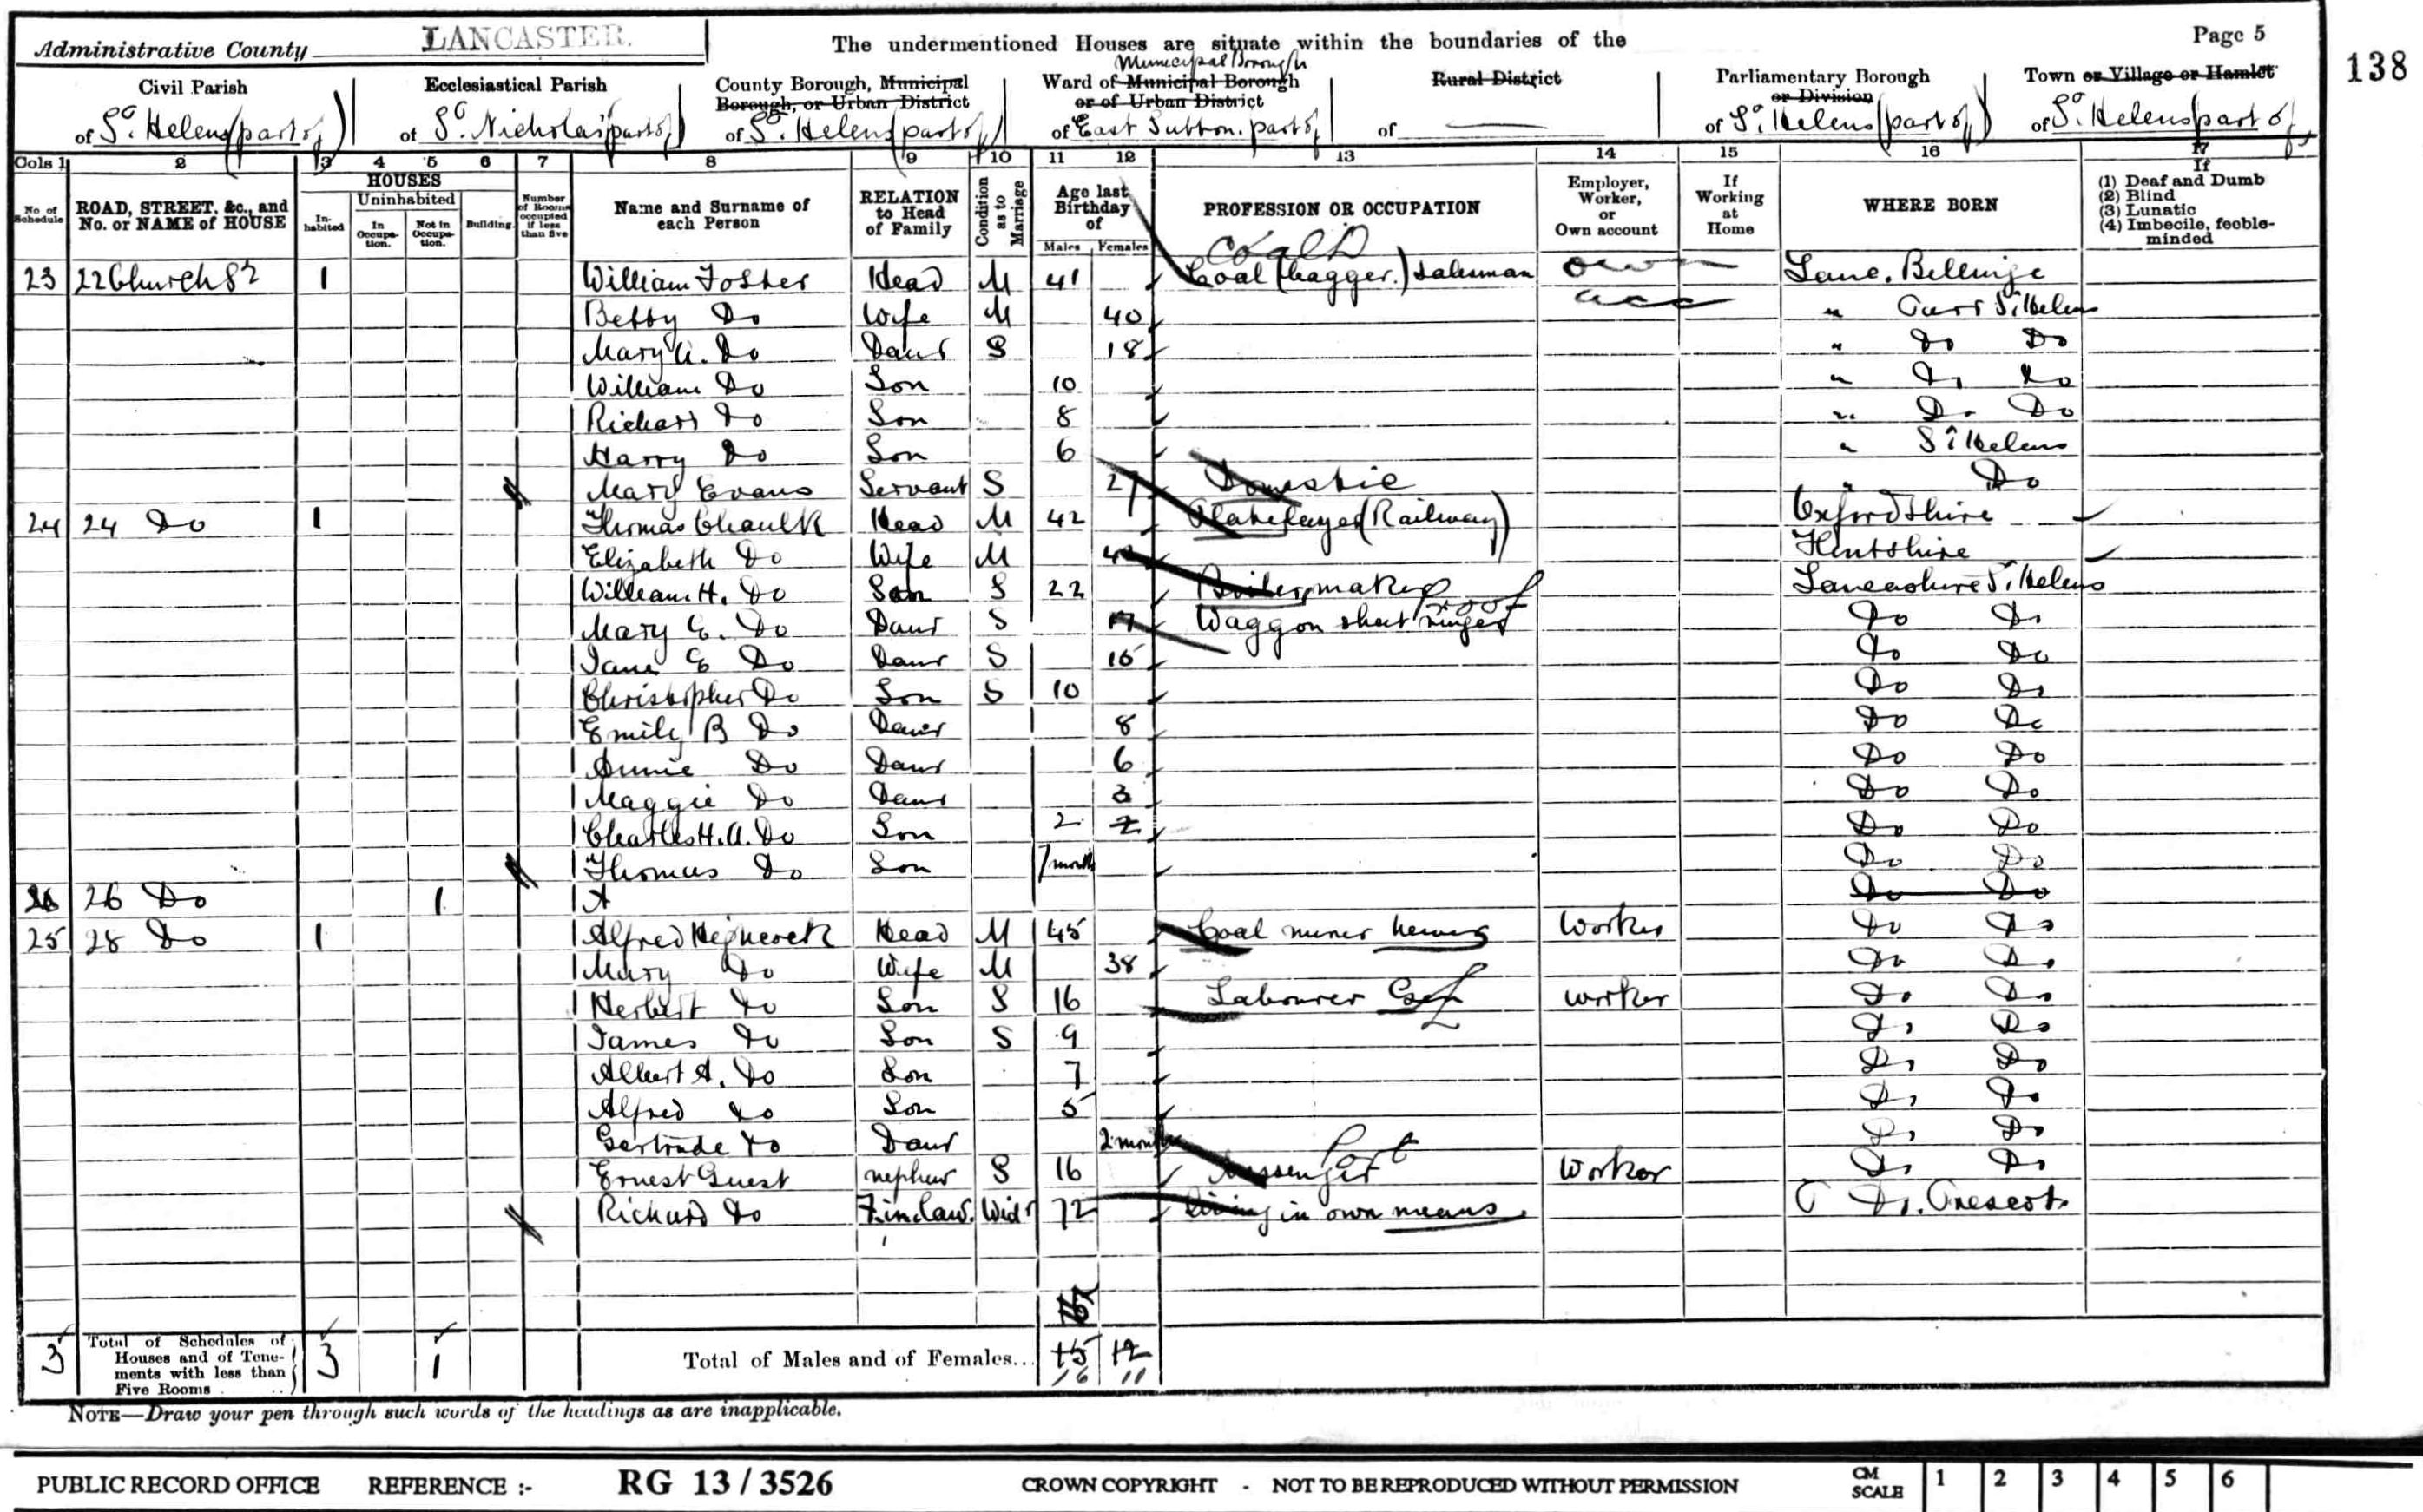 Administrative County LANCASTER.
The undermentioned Houses are situate within the boundaries of the
Page 5
138
Civil Parish
of St. Helens (part of)
Ecclesiastical Parish
of St. Nicholas (part of)
County Borough, Municipal
Borough, or Urban District
of St. Helens (part of)
Municipal Borough
Ward of Municipal Borough
or of Urban District
of East Sutton. part of
Rural District
of
Parliamentary Borough
or Division
of St. Helens (part of)
Town or Village or Hamlet
of St. Helens part of
Cols 1 2 3 4 5 6 7 8 9 10 11 12 13 14 15 16 17
No of Schedule
ROAD, STREET, &c., and No. or NAME of HOUSE
HOUSES
Inhabited
Uninhabited
In Occupation.
Not in Occupation.
Building
Number of Rooms occupied if less than five
Name and Surname of each Person
RELATION to Head of Family
Condition as to Marriage
Age last Birthday of
Males Females
PROFESSION OR OCCUPATION
Employer, Worker, or Own account
If Working at Home
WHERE BORN
If
(1) Deaf and Dumb
(2) Blind
(3) Lunatic
(4) Imbecile, feeble-minded
23 22 Church St 1 William Foster Head M 41 Coal (bagger.) Salesman own Lanc. Billinge
Betty Do Wife M 40 acc " Carr St. Helens
Mary A. Do Daur S 18 " Do Do
William Do Son 10 " Do Do
Richard Do Son 8 " Do Do
Harry Do Son 6 " St Helens
Mary Evans Servant S 27 Domestic " Do
24 24 Do 1 Thomas Chaulk Head M 42 Platelayer (Railway) Oxfordshire
Elizabeth Do Wife M Flintshire
William H. Do Son S 22 Boilermaker Lancashire St. Helens
Mary E. Do Daur S Waggon sheet proof Do Do
Jane E Do Daur S 15 Do Do
Christopher Do Son S 10 Do Do
Emily B Do Daur 8 Do Do
Annie Do Daur 6 Do Do
Maggie Do Daur 3 Do Do
Charles H. A. Do Son 2 2 Do Do
Thomas Do Son 7 month Do Do
26 Do 1 A Do Do
25 28 Do 1 Alfred Head M 45 Coal miner hewer Worker Do Do
Mary Do Wife M 38 Do Do
Herbert Do Son S 16 Labourer worker Do Do
James Do Son S 9 Do Do
Albert A. Do Son 7 Do Do
Alfred Do Son 5 Do Do
Gertrude Do Daur 2 month Do Do
Ernest Guest nephew S 16 Messenger Worker Do Do
Richard Do F. in law. Widr 72 living in own means Do. Prescot
3 Total of Schedules of Houses and of Tenements with less than Five Rooms 3 1 Total of Males and of Females... 15 12
16 11
NOTE—Draw your pen through such words of the headings as are inapplicable.
PUBLIC RECORD OFFICE REFERENCE :- RG 13 / 3526 CROWN COPYRIGHT - NOT TO BE REPRODUCED WITHOUT PERMISSION CM SCALE 1 2 3 4 5 6